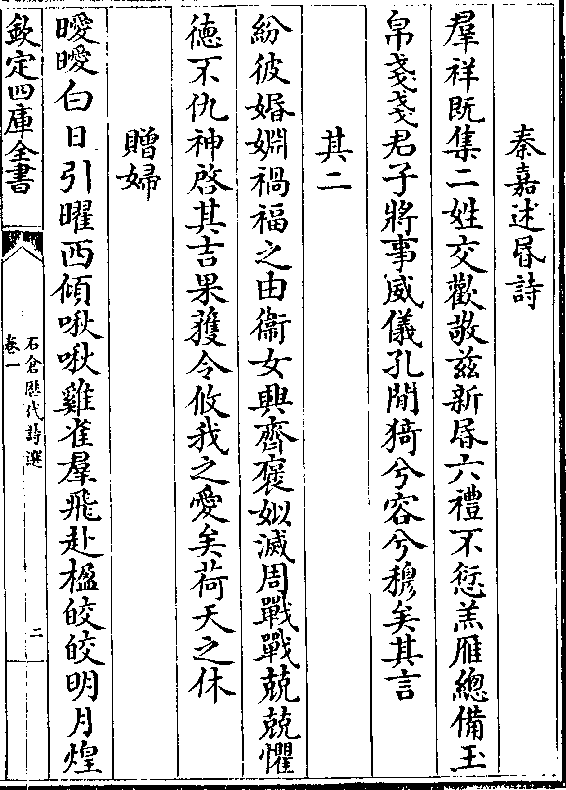 秦嘉述昬詩
羣祥既集二姓交歡敬兹新昬六禮不愆羔雁總備玉
帛戔戔君子將事威儀孔閒猗兮容兮穆矣其言
其二
紛彼婚姻禍福之由衞女興齊褒姒滅周戰戰兢兢懼
徳不仇神啓其吉果獲令攸我之愛矣荷天之休
贈婦
曖曖白日引曜西傾啾啾雞雀羣飛赴楹皎皎明月煌
欽定四庫全書
石倉歴代詩選
卷一
二